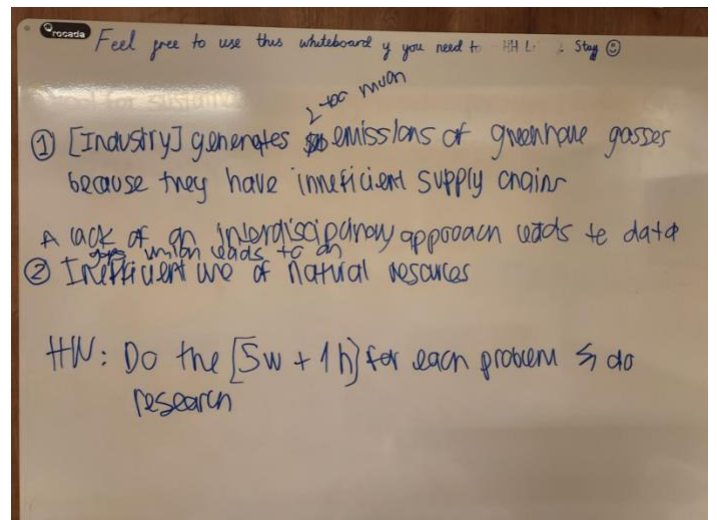 rocada
Feel free to use this whiteboard if you need to HH Stay
too much
① [Industry] generates emissions of greenhouse gasses
because they have inneficient supply chains
A lack of an interdisciplinary approach leads to data
gaps which leads to an
② Inefficient use of natural resources
HW: Do the [5w + 1h] for each problem & do
research